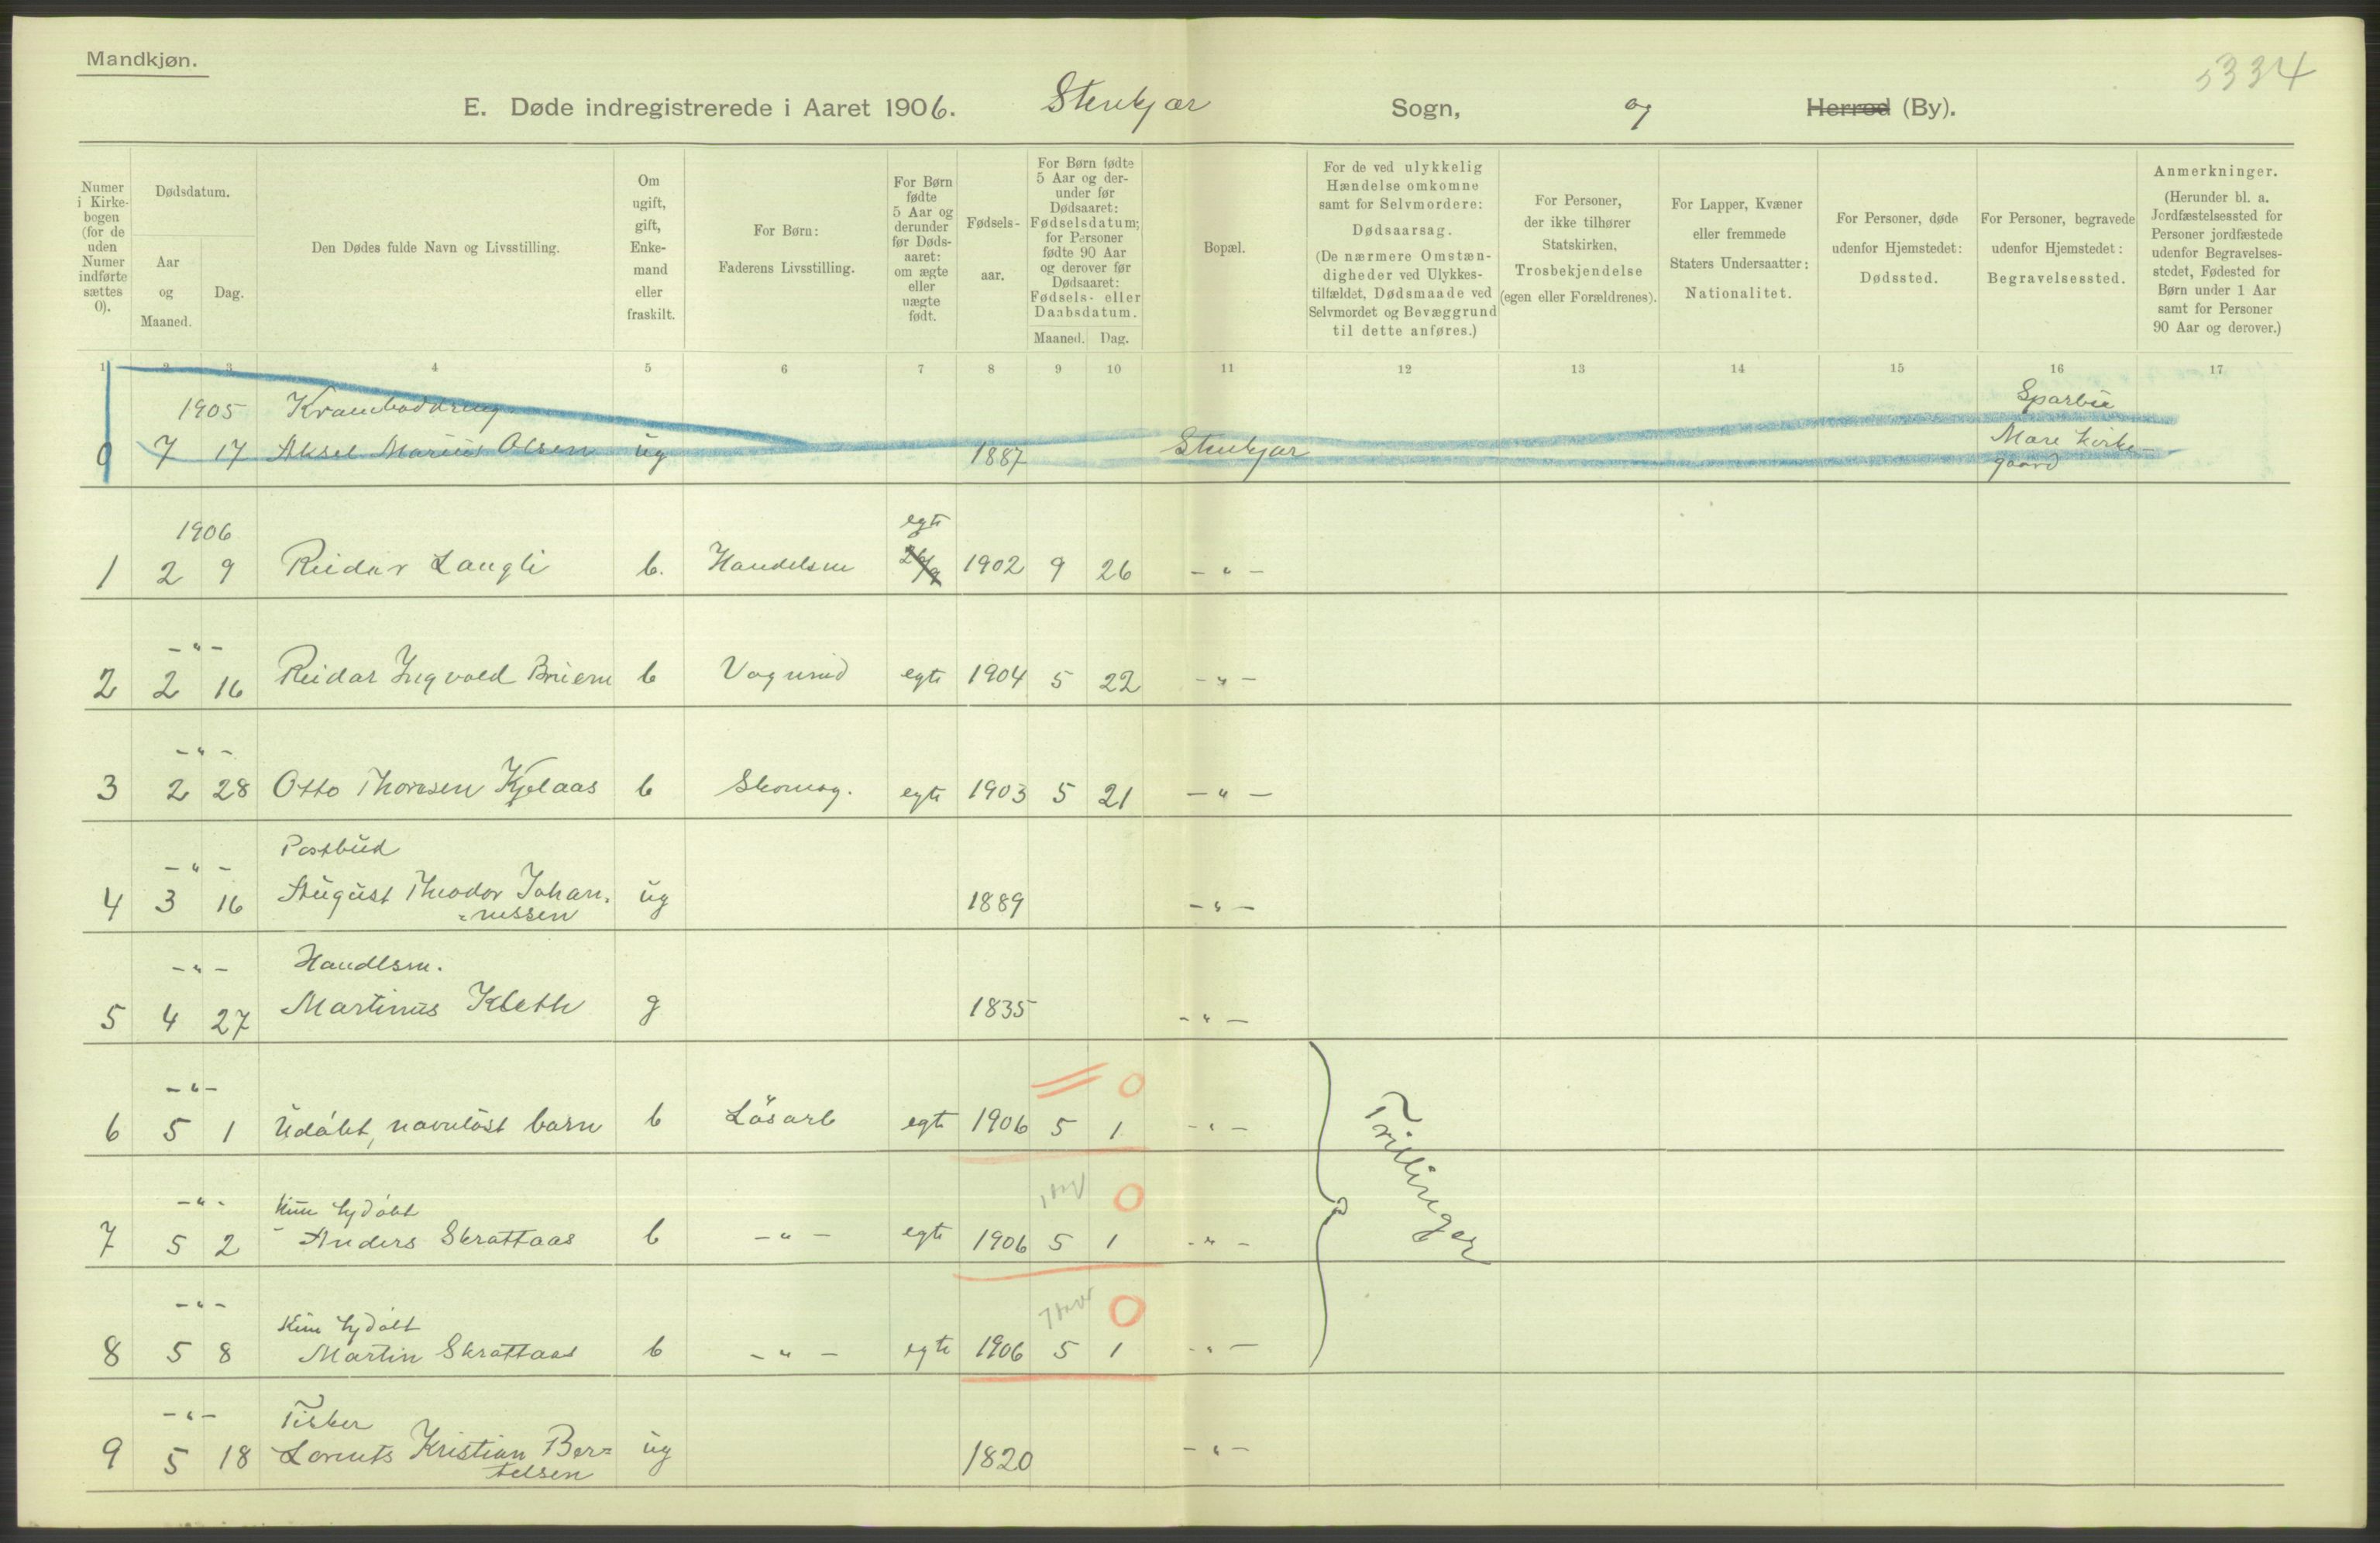 Mandkjøn.
5334
E. Døde indregistrerede i Aaret 1906. Stenkjær Sogn, og Herred (By).
Numer i Kirkebogen (for de uden Numer indførte sættes 0).
Dødsdatum.
Aar og Maaned.
Dag.
Den Dødes fulde Navn og Livsstilling.
Om ugift, gift, Enkemand eller fraskilt.
For Børn: Faderens Livsstilling.
For Børn fødte 5 Aar og derunder før Dødsaaret: om ægte eller uægte født.
Fødselsaar.
For Børn fødte 5 Aar og derunder før Dødsaaret: Fødselsdatum; for Personer fødte 90 Aar og derover før Dødsaaret: Fødsels- eller Daabsdatum.
Maaned. Dag.
Bopæl.
For de ved ulykkelig Hændelse omkomne samt for Selvmordere: Dødsaarsag. (De nærmere Omstændigheder ved Ulykkestilfældet, Dødsmaade ved Selvmordet og Bevæggrund til dette anføres.)
For Personer, der ikke tilhører Statskirken, Trosbekjendelse (egen eller Forældrenes).
For Lapper, Kvæner eller fremmede Staters Undersaatter: Nationalitet.
For Personer, døde udenfor Hjemstedet: Dødssted.
For Personer, begravede udenfor Hjemstedet: Begravelsessted.
Anmerkninger. (Herunder bl. a. Jordfæstelsessted for Personer jordfæstede udenfor Begravelsesstedet, Fødested for Børn under 1 Aar samt for Personer 90 Aar og derover.)
1 2 3 4 5 6 7 8 9 10 11 12 13 14 15 16 17
1905 Kramboddreng Sparbu
0 7 17 Aksel Marius Olsen ug 1887 Stenkjær Mære Kirke-
gaard
1906 egte
1 2 9 Reidar Langli b. Handelsm 26/9 1902 9 26 - " -
- " -
2 2 16 Reidar Ingvald Bruem b Vognmd egte 1904 5 22 - " -
- " -
3 2 28 Otto Thoresen Kjelaas b Skomag. egte 1903 5 21 - " -
- " - Postbud
4 3 16 August Theodor Johan- ug 1889 - " -
=nessen
- " - Handlsm.
5 4 27 Martinus Kleth g 1835 - " -
- " - 0
6 5 1 Udøbt, navnløst barn b Løsarb egte 1906 5 1 - " -
Trillinger
- " - Kun hjdøbt 0
7 5 2 Anders Skrattaas b - " - egte 1906 5 1 - " -
- " - Kun hjdøbt 0
8 5 8 Martin Skrattaas b - " - egte 1906 5 1 - " -
- " - Fisker
9 5 18 Lorents Kristian Ber= ug 1820 - " -
telsen